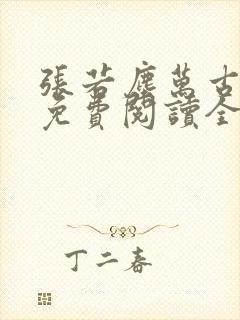 張若塵萬古
免費閱讀全
丁二春